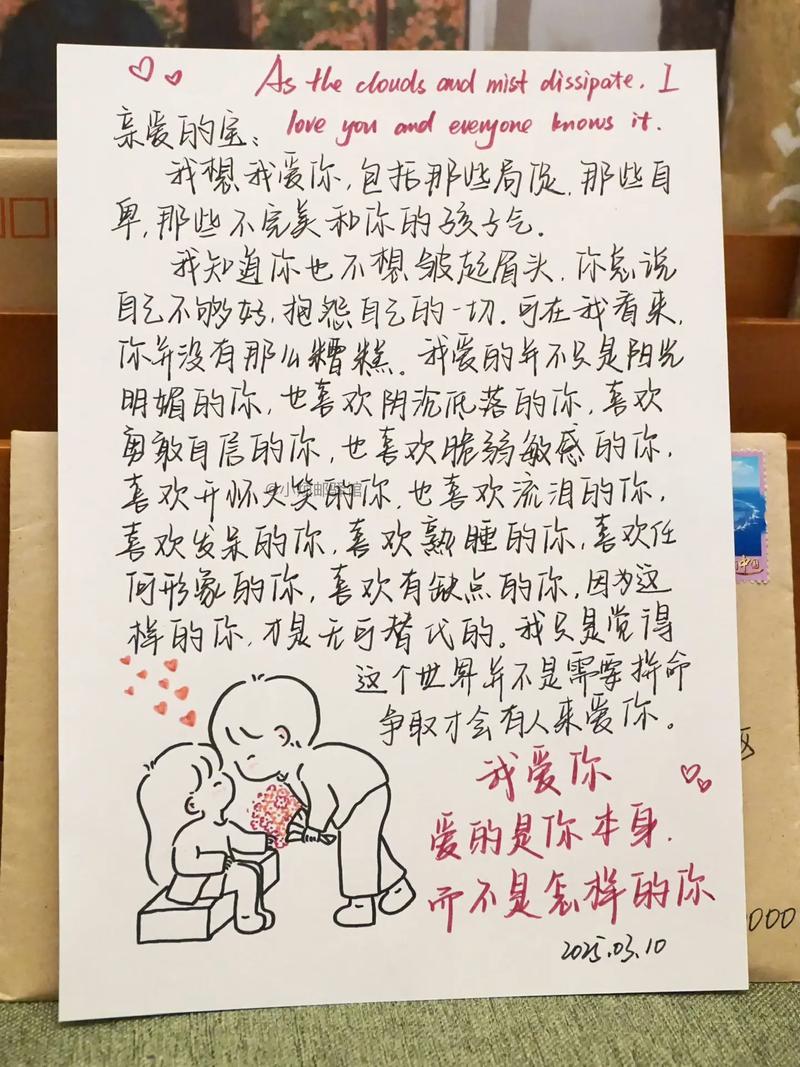 As the clouds and mist dissipate. I
love you and everyone knows it.
亲爱的宝：
我想我爱你，包括那些局促，那些自
卑，那些不完美和你的孩子气。
我知道你也不想皱起眉头，你总说
自己不够好，抱怨自己的一切。可在我看来，
你并没有那么糟糕。我爱的并不只是阳光
明媚的你，也喜欢阴沉低落的你，喜欢
勇敢自信的你，也喜欢脆弱敏感的你，
喜欢开怀大笑的你，也喜欢流泪的你，
喜欢发呆的你，喜欢熟睡的你，喜欢任
何形象的你，喜欢有缺点的你，因为这
样的你，才是无可替代的。我只是觉得
这个世界并不是需要拼命
争取才会有人来爱你。
我爱你
爱的是你本身，
而不是怎样的你
2025.03.10
中国
0000